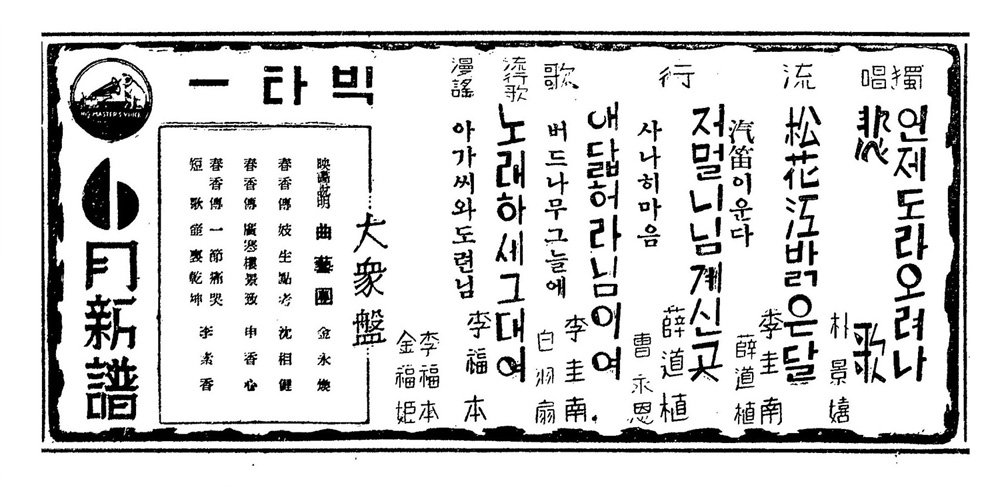 빅타ー
HIS MASTER'S VOICE
6月新譜
獨唱
언제도라오려나
悲歌
朴景嬉
流行歌
松花江밝은달
李圭南
汽笛이운다
薛道植
저멀니님계신곳
薛道植
사나히마음
曹永恩
애닯허라님이여
李圭南
버드나무그늘에
白羽扇
流行歌
노래하세그대여
李福本
漫謠
아가씨와도련님
李福本
金福姬
大衆盤
映画説明 曲藝團 金永煥
春香傳 妓生點考 沈相健
春香傳 廣寒樓景致 申香心
春香傳 一節痛哭
短歌 壺裏乾坤 李素香